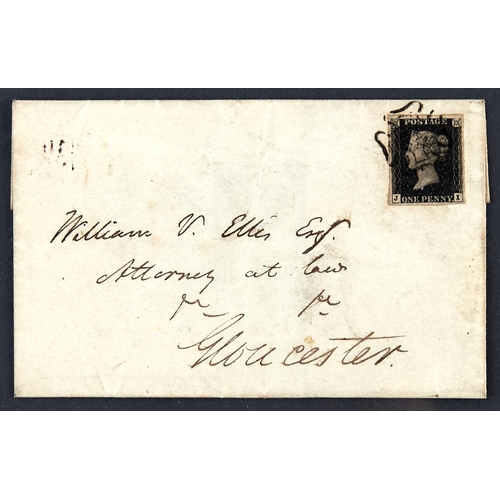 POSTAGE
J I
ONE PENNY
William V. Ellis Esq.
Attorney at law
Gloucester.